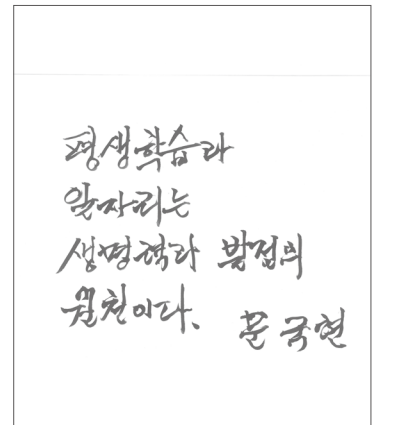 평생학습과
일자리는
생명력과 발전의
원천이다.
문국현